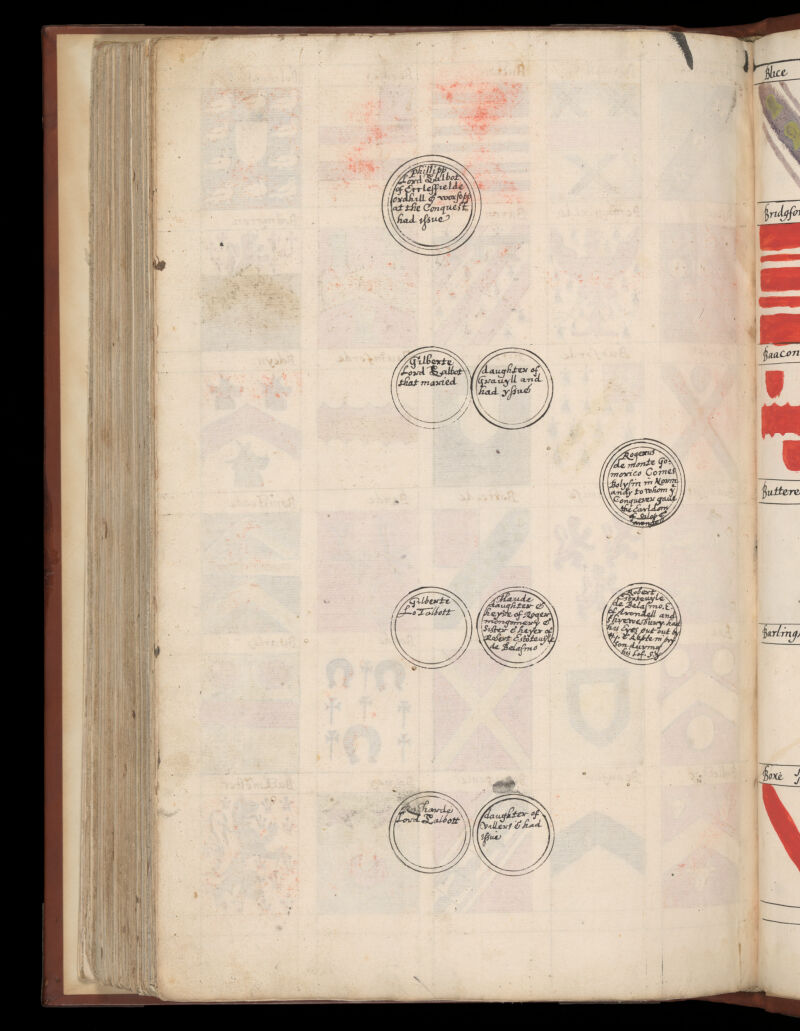 Phillipp
Lord Talbot
of Ecclesfielde
ordhill & worsopp
at the Conquest
had yssue
Gilberte
Lord Talbot
that maried
daughter of
Grauyll and
had yssue
Rogerus
de monte Go-
morico Comes
Bolysin in Norm
andy to whom ye
Conqueror gaue
the Earldom
of Salop &
Arondell
Gilberte
Lo Talbott
Maude
daughter &
heyre of Roger
montgomery &
Sister & heyer of
Robert Estoteuyle
de Belasmo
Robert
Estoteuyle
de Belasmo. E.
of Arondell and
Shrewesbury had
his Eyes put out by
H. j. & kept in pry
son during
his lif. s.y.
Richarde
Lord Talbott
daughter of
Villers & had
yssue
Blice
Bridgfor
Baacon
Buttere
Barling
Boxe